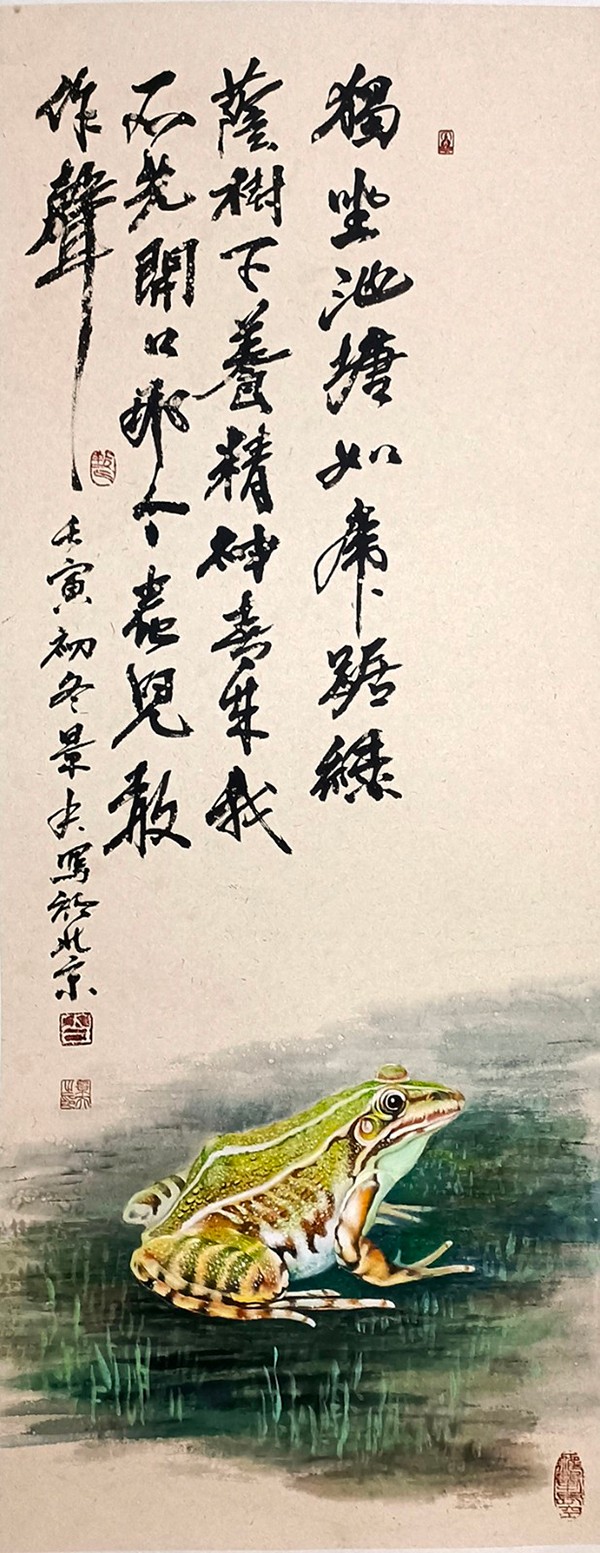 獨坐池塘如虎踞綠
蔭樹下養精神春來我
不先開口那个蟲兒敢
作聲
壬寅初冬景夫寫於北京